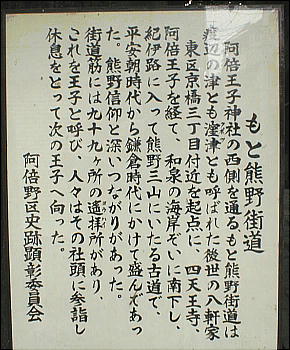 もと熊野街道
阿倍王子神社の西側を通るもと熊野街道は
渡辺の津とも窪津とも呼ばれた後世の八軒家
東区京橋三丁目付近を起点に四天王寺、
阿倍王子を経て、和泉の海岸ぞいに南下し、
紀伊路に入って熊野三山にいたる古道で、
平安朝時代から鎌倉時代にかけて盛んであっ
た。熊野信仰と深いつながりがあった。
街道筋には九十九ヶ所の遙拝所があり、
これを王子と呼び、人々はその社頭に参詣し
休息をとって次の王子へ向った。
阿倍野区史跡顕彰委員会